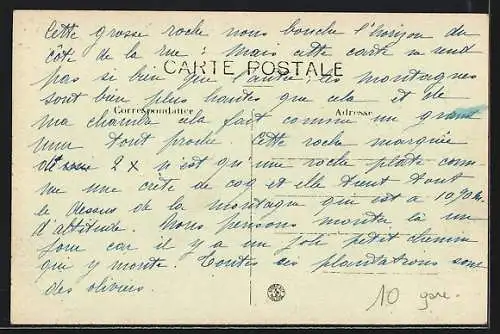 Cette grosse roche nous bouche l'horizon du
côté de la rue ; Mais cette carte ne rend
CARTE POSTALE
pas si bien que l'autre ; les montagnes
sont bien plus hautes que cela et de
Correspondance
Adresse
ma chambre cela fait comme un grand
mur tout proche. Cette roche marquée
2 x n'est qu'une roche plate com-
me une crête de coq et elle tient tout
le dessus de la montagne qui est à 1090 m.
d'altitude. Nous pensons monter là un
jour car il y a un joli petit chemin
qui y monte. Toutes ces plantations sont
des oliviers.
10 gare.